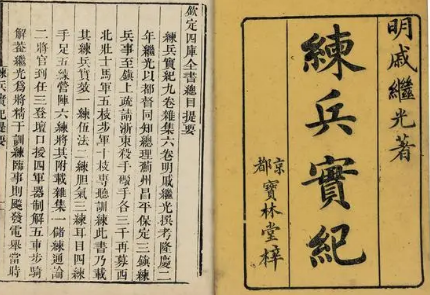 明戚繼光著
練兵實紀
京都寶林堂梓
欽定四庫全書總目提要
練兵實紀九卷雜集六卷明戚繼光撰考隆慶二
年繼光以都督同知總理薊州昌平保定三鎮練
兵事至鎮上疏請浙東殺手手各三千再募西
北壯士馬軍五枝步軍十枝專聽訓練此書乃載
其練兵實效一練伍法二練胆氣三練耳目四練
手足五練營陣六練將其附載雜集一儲練通論
二將官到任三登壇口授四軍器制解五車步騎
解葢繼光爲將精于訓練臨事則飈發電舉當時
練兵實紀提要